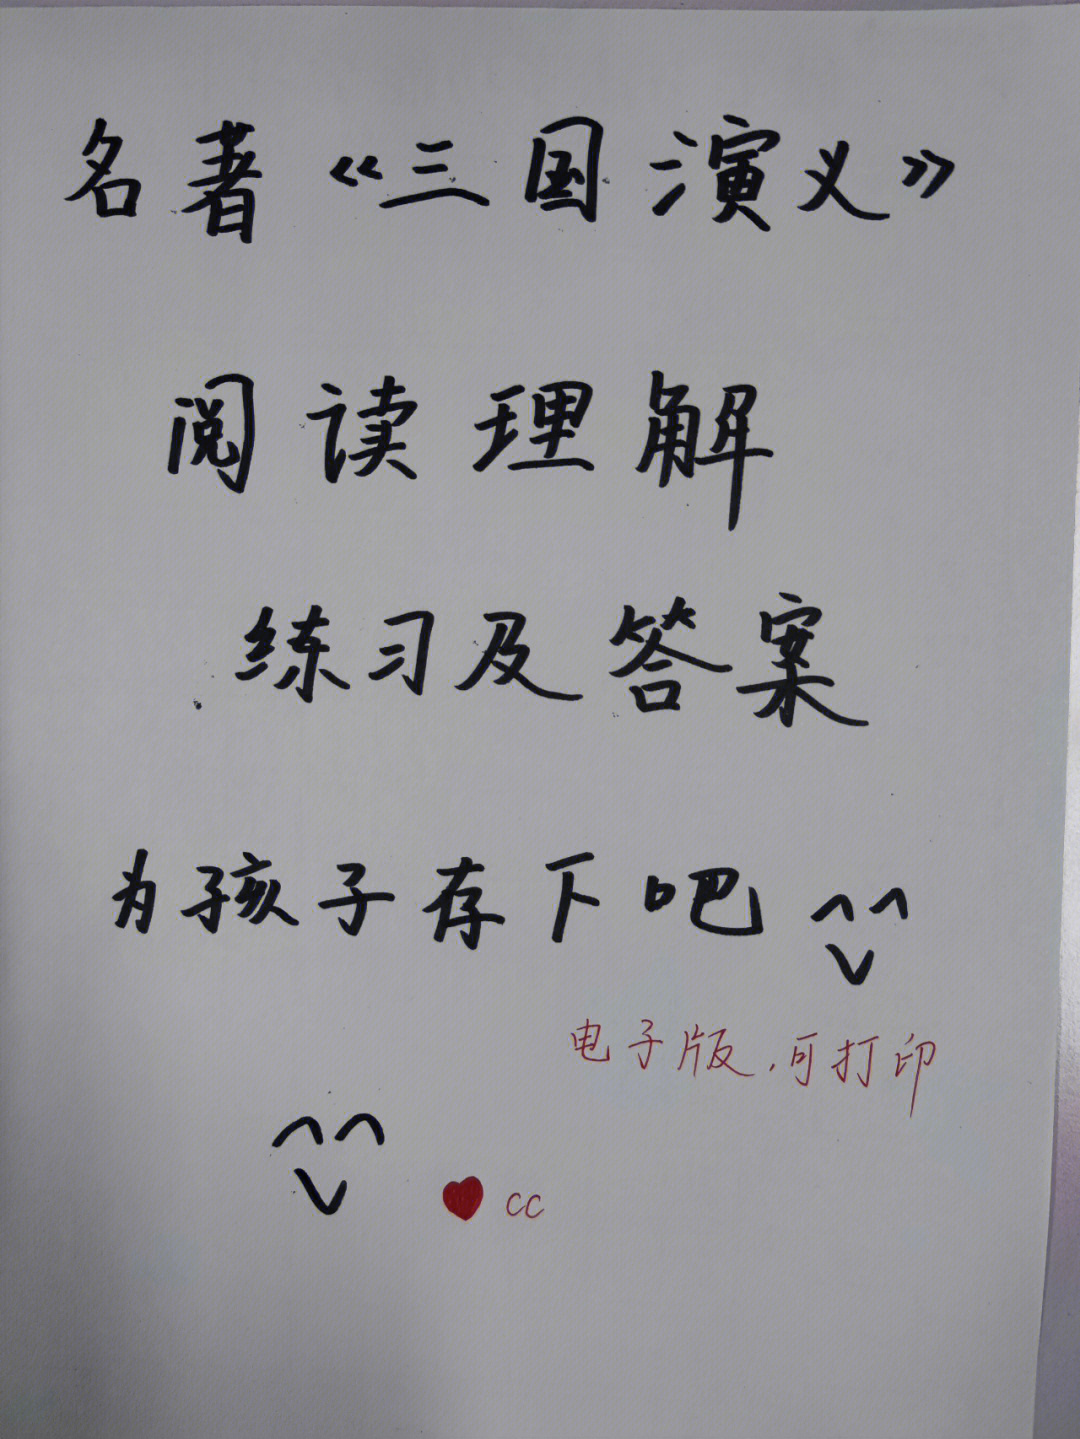 名著《三国演义》
阅读理解
练习及答案
为孩子存下吧
电子版，可打印
cc